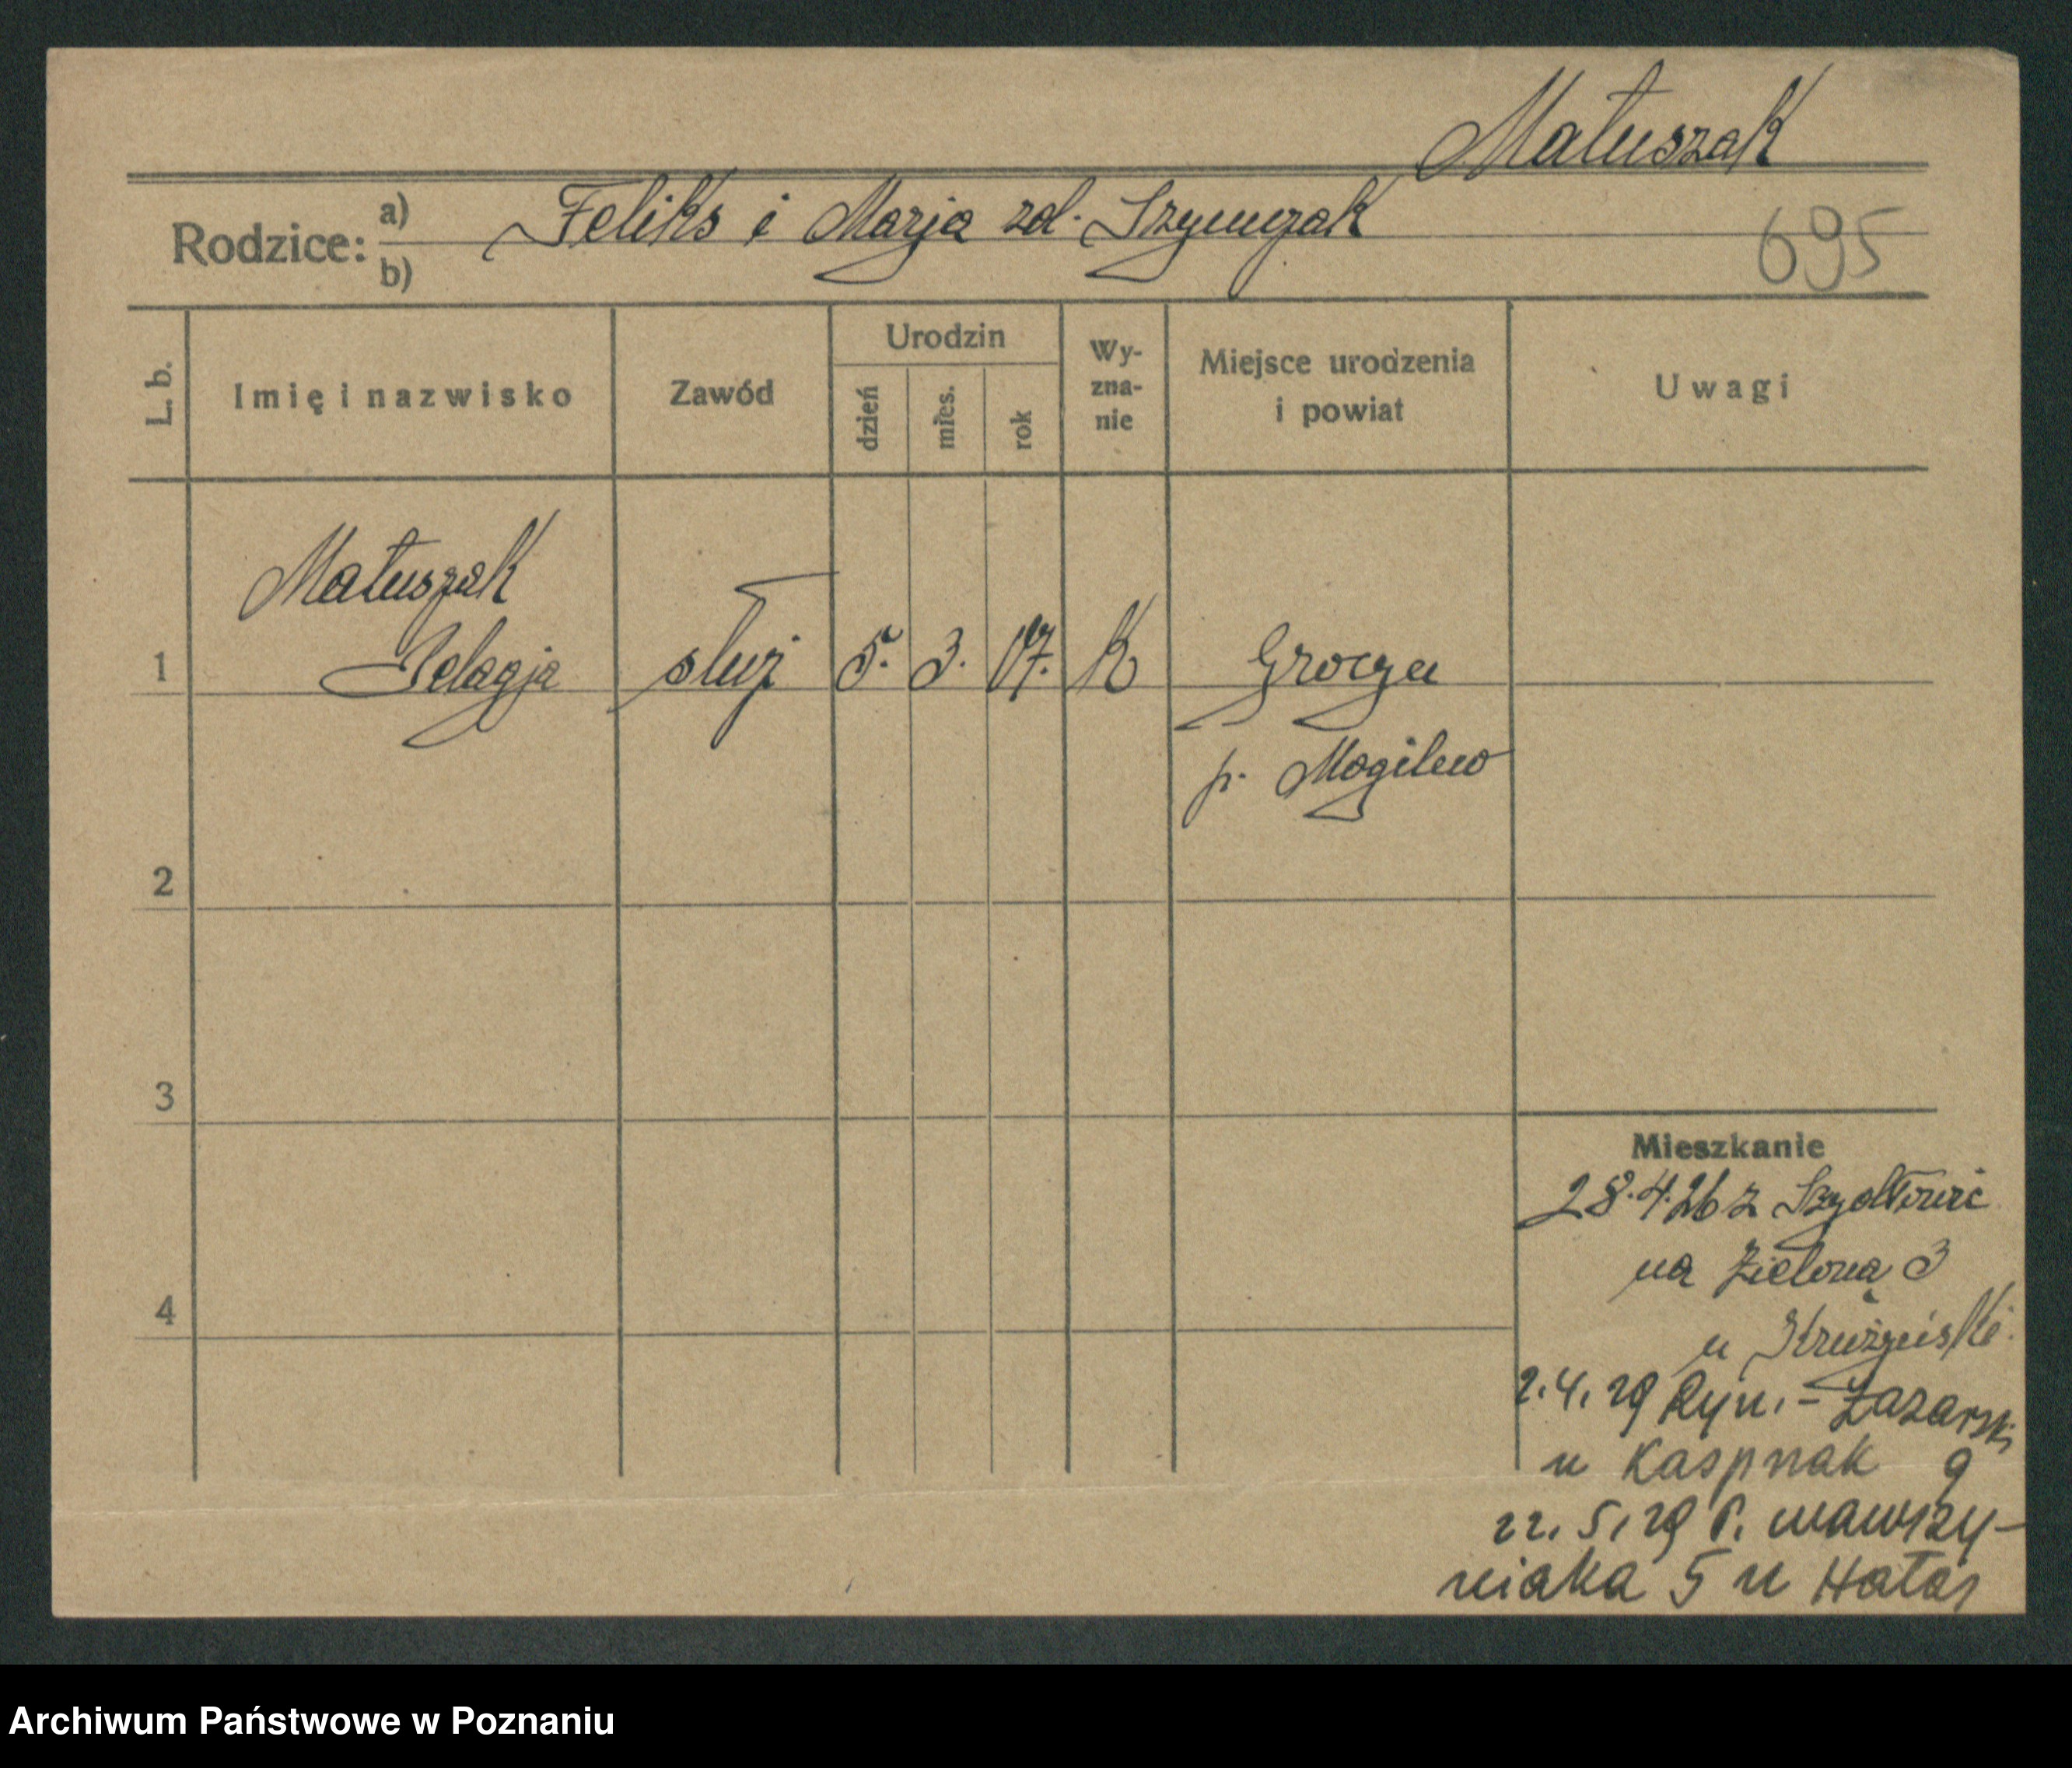 Matuszak
Rodzice: a) Feliks i Marja zd. Szymczak
b)
695
L. b.
Imię i nazwisko
Zawód
Urodzin
dzień
mies.
rok
Wy-
zna-
nie
Miejsce urodzenia
i powiat
Uwagi
Matuszak
1 Pelagja służ 5. 3. 07. K
p. Mogilno
2
3
4
Mieszkanie
28.4.26 z
na Zieloną 3
u
2.4.29 Ryn.-Łazarski
u Kasprzak 9
22.5.29 P. Wawrzy-
niaka 5 u Hałas
Archiwum Państwowe w Poznaniu